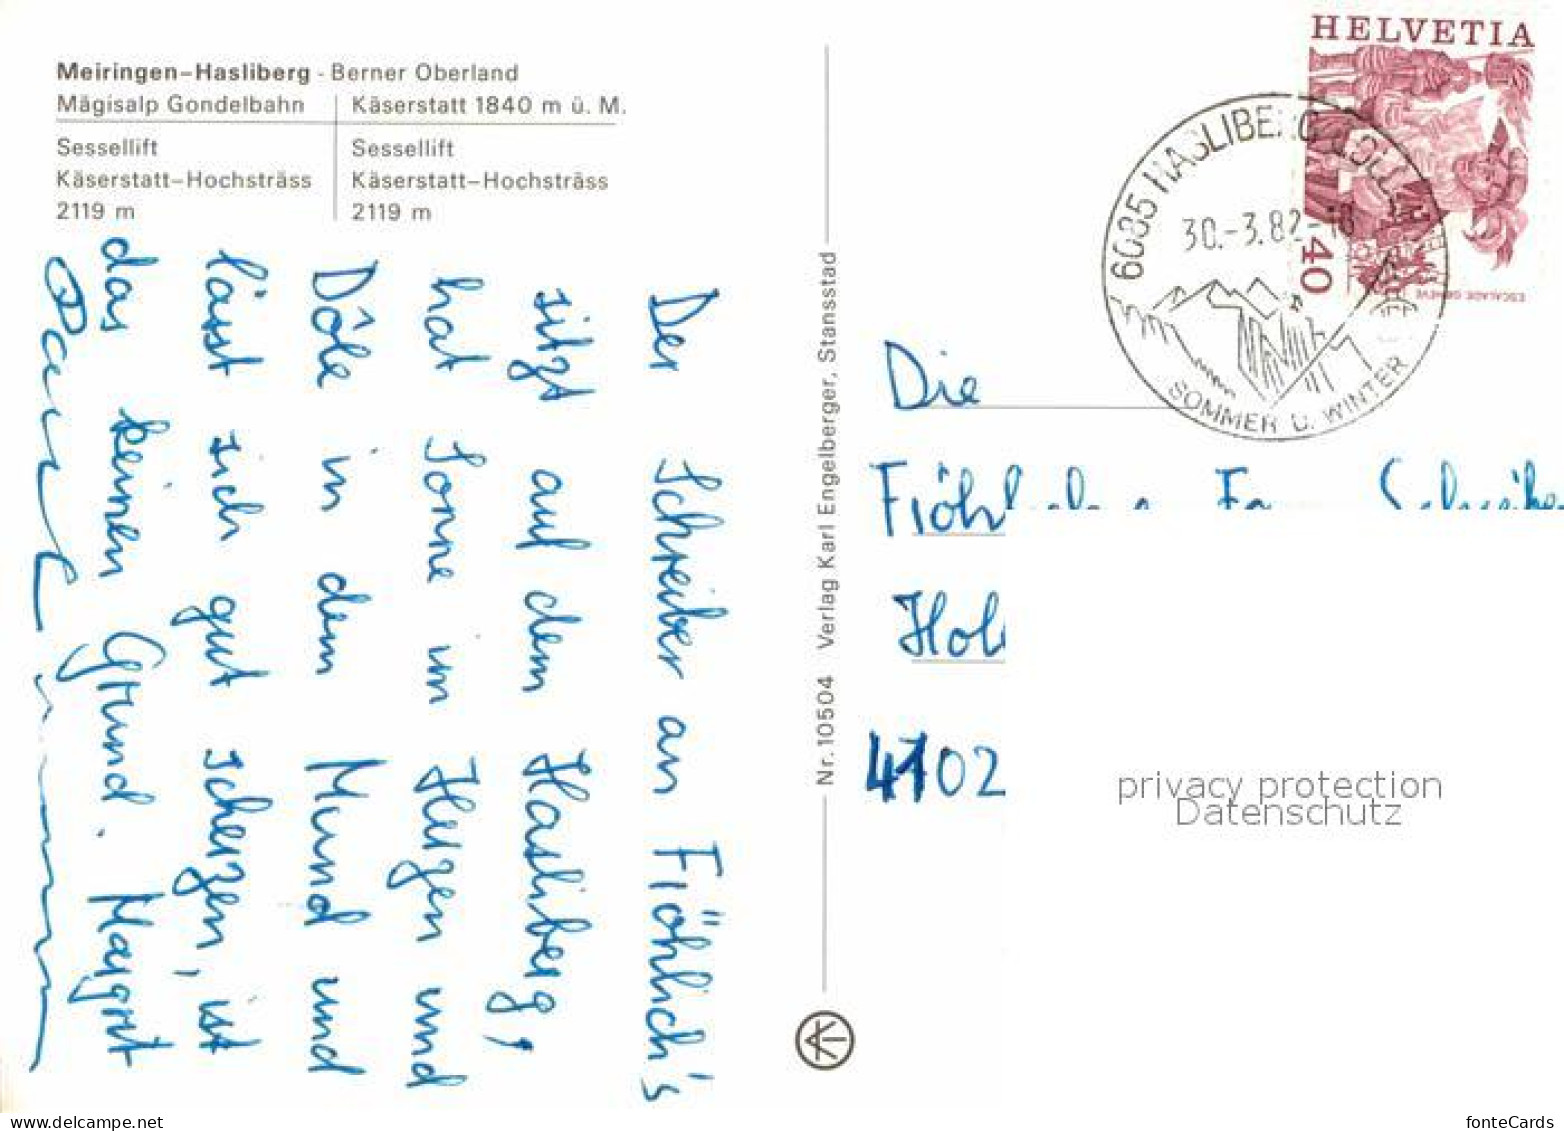 Meiringen-Hasliberg - Berner Oberland
Mägisalp Gondelbahn
Käserstatt 1840 m ü. M.
Sessellift
Käserstatt-Hochsträss
2119 m
Sessellift
Käserstatt-Hochsträss
2119 m
Der Schreiber an Fröhlich's
sitzt auf dem Hasliberg,
hat Sonne im Herzen und
Dôle in dem Mund und
lässt sich gut scherzen, ist
das keinen Grund. Margrit
Paul
Nr. 10504 Verlag Karl Engelberger, Stansstad
HELVETIA
40
ESCALADE GENÈVE
6085 HASLIBERG
30.-3.82-18
SOMMER U. WINTER
Die
4102
privacy protection
Datenschutz
www.delcampe.net
fonteCards